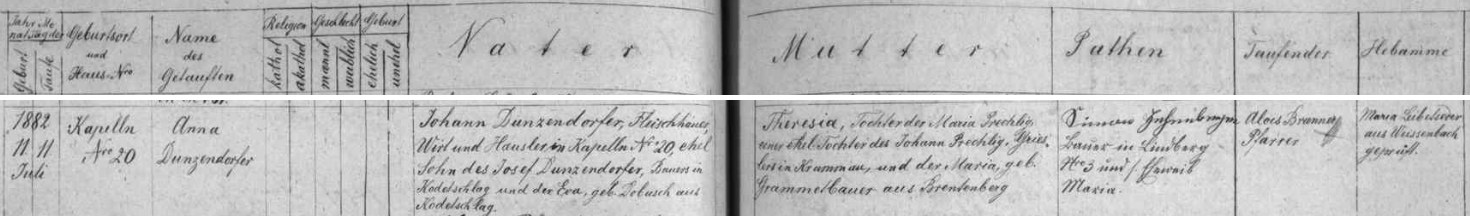 Jahr Mo-
nat Tag der
Geburt
Taufe
Geburtsort
und
Haus-Nro
Name
des
Getauften
Religion
kathol
akathol
Geschlecht
männl
weiblich
Geburt
ehelich
unehel
Vater
Mutter
Pathen
Taufender
Hebamme
1882
11 11
Juli
Kapelln
Nro 20
Anna
Dunzendorfer
Johann Dunzendorfer, Fleischhauer,
Wirt und Häusler in Kapelln Nro 20, ehel
Sohn des Josef Dunzendorfer, Bauers in
Kodetschlag und der Eva, geb. Dobusch aus
Kodetschlag.
Theresia, Tochter der Maria Prechtig,
einer ehel. Tochter des Johann Prechtig,
in Krummau, und der Maria, geb.
Grammelbauer aus Brentenberg
Simon
Bauer in Lindberg
Nro 3 und s. Eheweib
Maria.
Alois Brunner
Pfarrer
Maria Leibetseder
aus Weissenbach
geprüft.